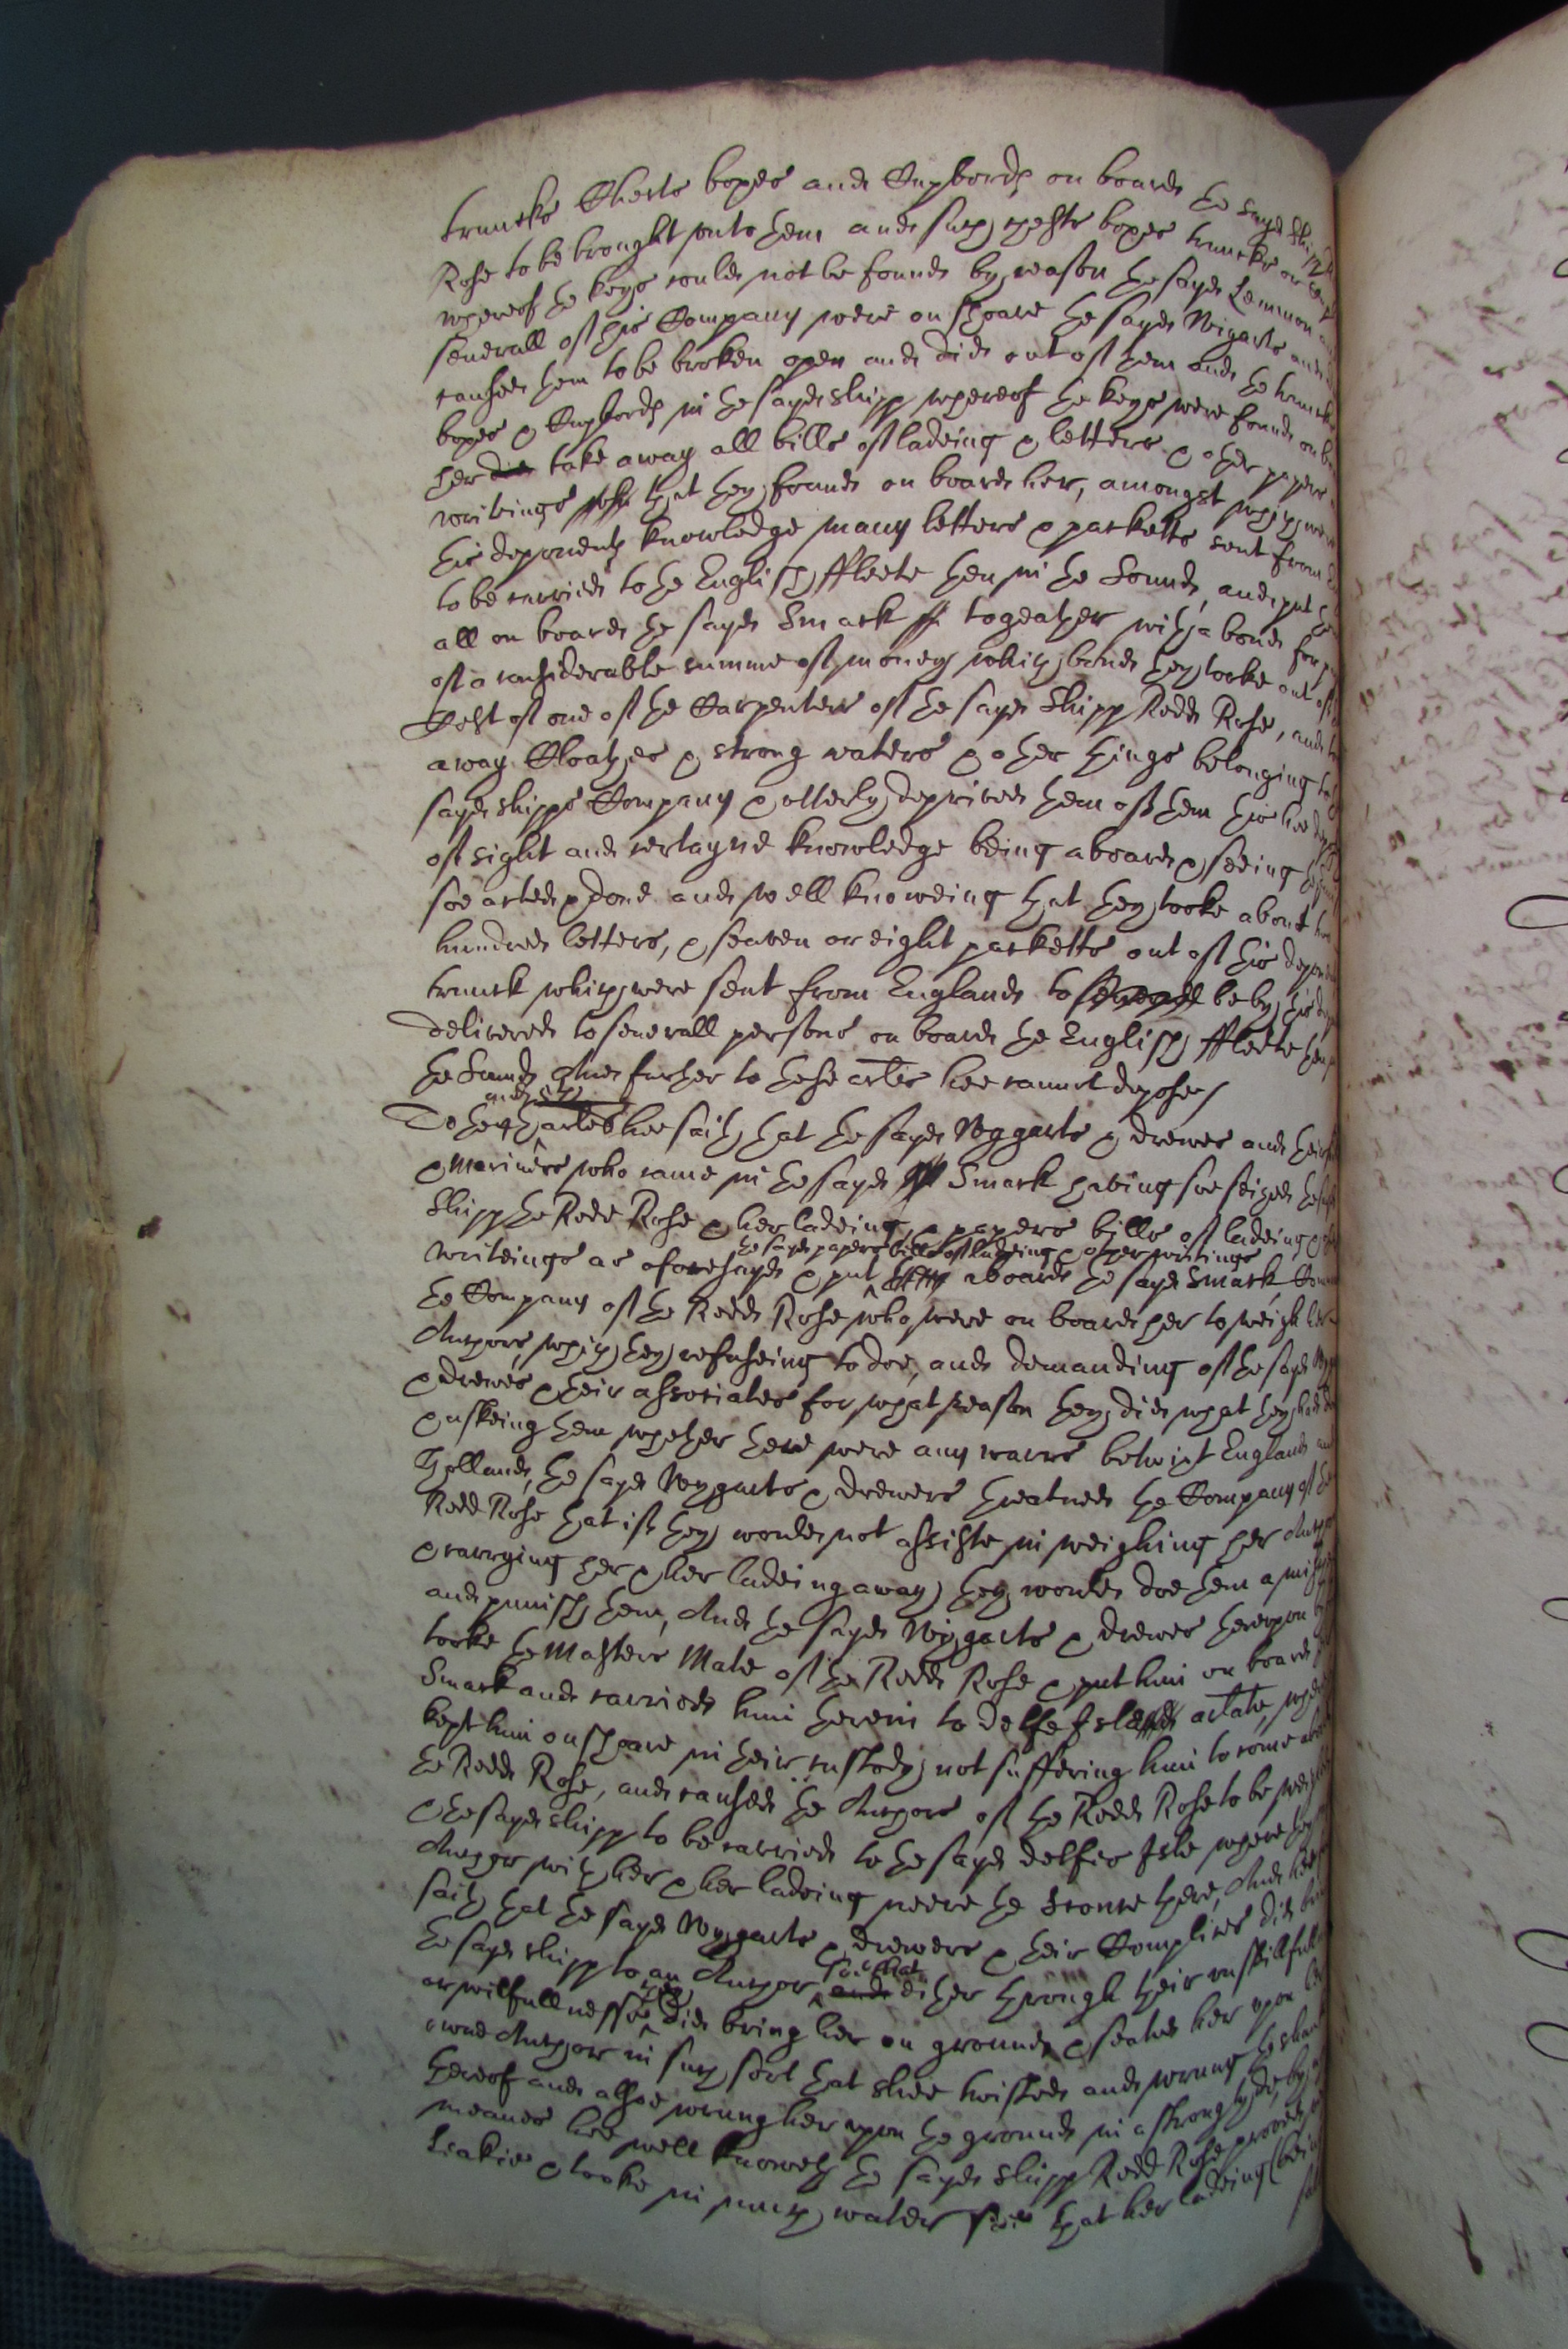 truncks Chests boxes and Cupbords on board the sayd Shipp
Rose to be brought unto them and such chests boxes truncks or
whereof the keys could not be found by reason the sayd Lemmon
severall of his Company were on shoare the sayd Wiggarts and
caused them to be broken open and did out of them and the trunck
boxes & Cupbords in the sayd shipp whereof the keys were found on
her did take away all bills of ladeing & letters & other papers
writeings that they found on board her, amongst which were
this deponents knowledge many letters & packetts sent from
to be carried to the English ffleete then in the Sound, and put
all on board the sayd Smack togeather with a bond for
of a considerable summe of money which bond they tooke out of
Chest of one of the Carpenters of the sayd Shipp Redd Rose, and
away Cloathes & strong waters & other things belonging to
sayd shipps Company & utterly deprived them of them this hee
of sight and certayne knowledge being aboard & seeing
soe acted & done and well knoweing that they tooke about
hundred letters, & seaven or eight packetts out of this
trunck which were sent from England to be by this
delivered to severall persons on board the English ffleete then
the Sound And further to these artles hee cannot depose/
To the 4th and 5th artles hee saith that the sayd Wyggarts & drewes and their
& Mariners who came in the sayd Smack having soe seized the
Shipp the Redd Rose & her ladeing, & papers bills of ladeing &
writeings as aforesayd & put the sayd papers bills of ladeing & other writings aboard the sayd Smack,
the Company of the Redd Rose who were on board her to weigh her
Anchors, which they refuseing to doe, and demanding of the sayd
& drewes & their associates for what reason they did what they had
& askeing them whether there were any warrs betwixt England and
Holland, the sayd Wyggarts & drewers threatned the Company of the
Redd Rose that if they would not assiste in weighing her
& carrying her & her ladeing away they would doe them a
and punish them, And the sayd Wyggarts & drewes thereupon
tooke the Masters Mate of the Redd Rose & put him on board
Smack and carried him therein to delfe Island artate,
kept him on shoare in their custody not suffering him to come
the Redd Rose, and caused the Anchors of the Redd Rose to be
& the sayd shipp to be carried to the sayd delfes Isle where they
Anchor with her & her ladeing neere the Sconce there, And
saith that the sayd Wyggarts & drewers & their Complices did
the sayd shipp to an Anchor soe that either through their
or wilfullnesse they did bring her on ground & seated her upon
owne Anchor in such sort that shee twisted and wrung
thereof and alsoe wrung her upon the ground in a strong tyde, by
meanes hee well knoweth the sayd shipp Redd Rose
Leakie & tooke in much water that her ladeing (being